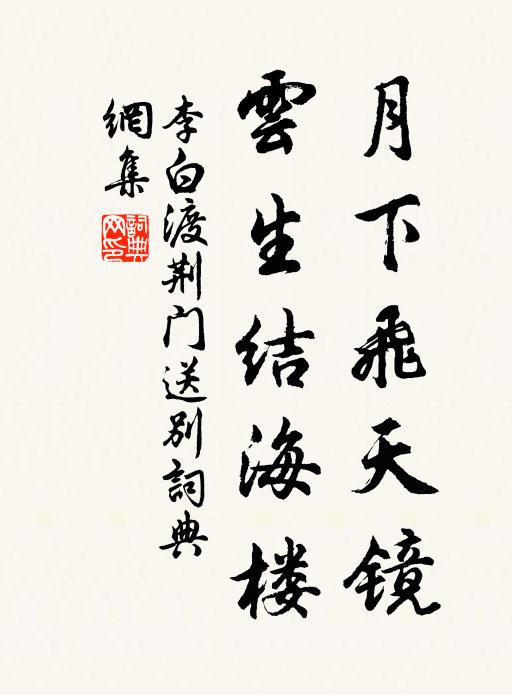 月下飛天镜
雲生结海楼
李白渡荆门送别詞典
網集
詞典网印